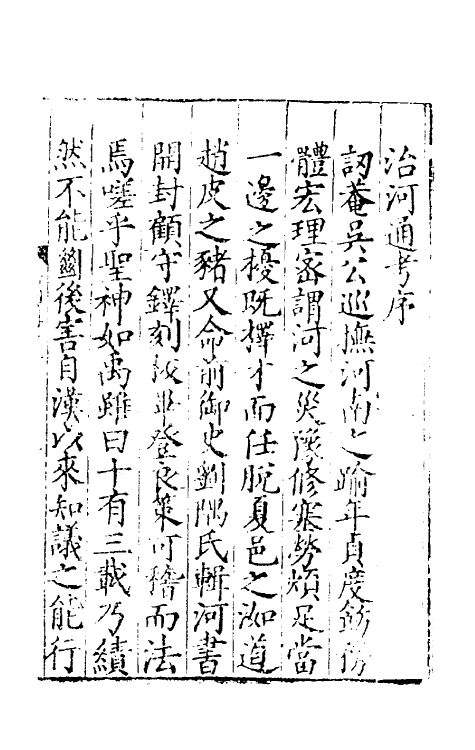 治河通考序
訒菴吳公巡撫河南之踰年貞度飭
體宏理密謂河之災豫修塞勞煩足當
一邊之擾既擇才而任脫夏邑之洳道
趙皮之豬又命前御史劉隅氏輯河書
開封顧守鐸刻登良策可稽而法
焉嗟乎聖神如禹雖曰十有三載乃績
然不能蠲後害自漢以來知議之能行